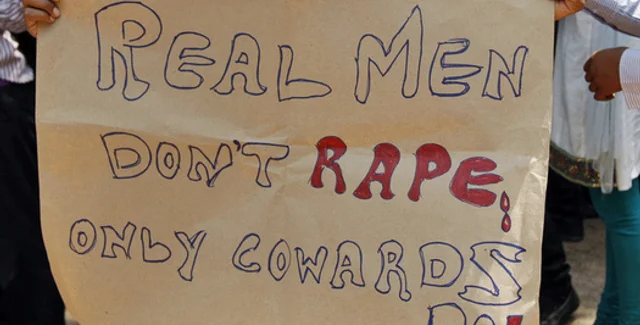 REAL MEN
DON'T RAPE,
ONLY COWARDS
DO!